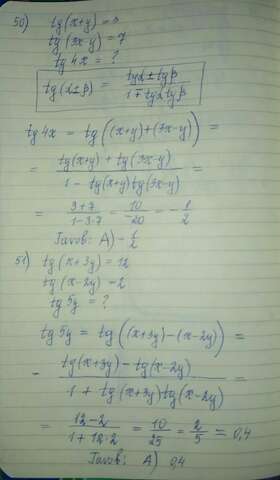 50) tg(x+y)=3
tg(3x-y)=7
tg4x=?
tg(α±β)=(tgα±tgβ)/(1∓tgαtgβ)
tg4x = tg((x+y)+(3x-y)) =
= (tg(x+y)+tg(3x-y))/(1-tg(x+y)tg(3x-y)) =
= (3+7)/(1-3·7) = 10/-20 = -1/2
Javob: A) -1/2
51) tg(x+3y)=12
tg(x-2y)=2
tg5y=?
tg5y = tg((x+3y)-(x-2y)) =
= (tg(x+3y)-tg(x-2y))/(1+tg(x+3y)tg(x-2y)) =
= (12-2)/(1+12·2) = 10/25 = 2/5 = 0,4
Javob: A) 0,4